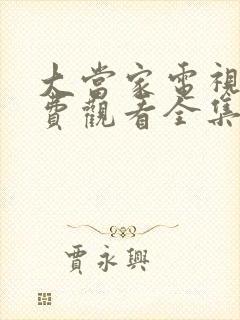 大當家電視
費觀看全集
賈永興